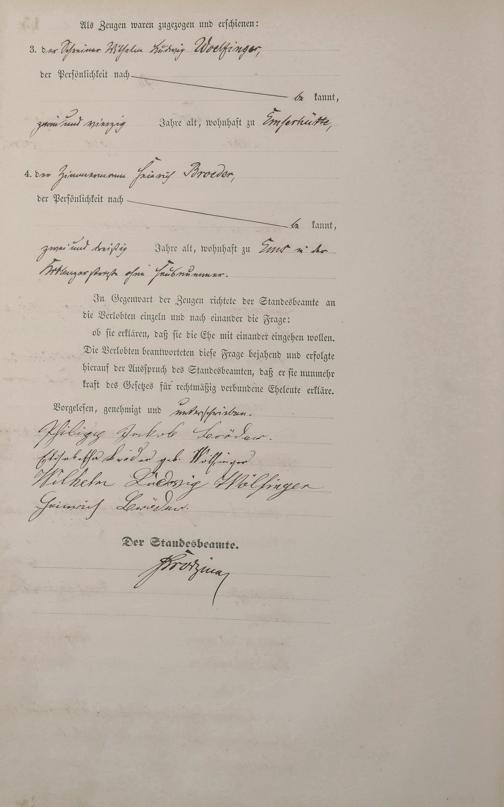 Als Zeugen waren zugezogen und erschienen:
3. der Schreiner Wilhelm Ludwig Woelfinger,
der Persönlichkeit nach
be kannt,
zwei und vierzig Jahre alt, wohnhaft zu Emserhütte,
4. der Zimmermann Heinrich Broeder,
der Persönlichkeit nach
be kannt,
zwei und dreißig Jahre alt, wohnhaft zu Ems in der
straße ohne Hausnummer.
In Gegenwart der Zeugen richtete der Standesbeamte an
die Verlobten einzeln und nach einander die Frage:
ob sie erklären, daß sie die Ehe mit einander eingehen wollen.
Die Verlobten beantworteten diese Frage bejahend und erfolgte
hierauf der Ausspruch des Standesbeamten, daß er sie nunmehr
kraft des Gesetzes für rechtmäßig verbundene Eheleute erkläre.
Vorgelesen, genehmigt und unterschrieben.
Philipp Jakob Bröder.
Elisabetha Bröder geb. Wölfinger
Wilhelm Ludwig Wölfinger
Heinrich Bröder.
Der Standesbeamte.